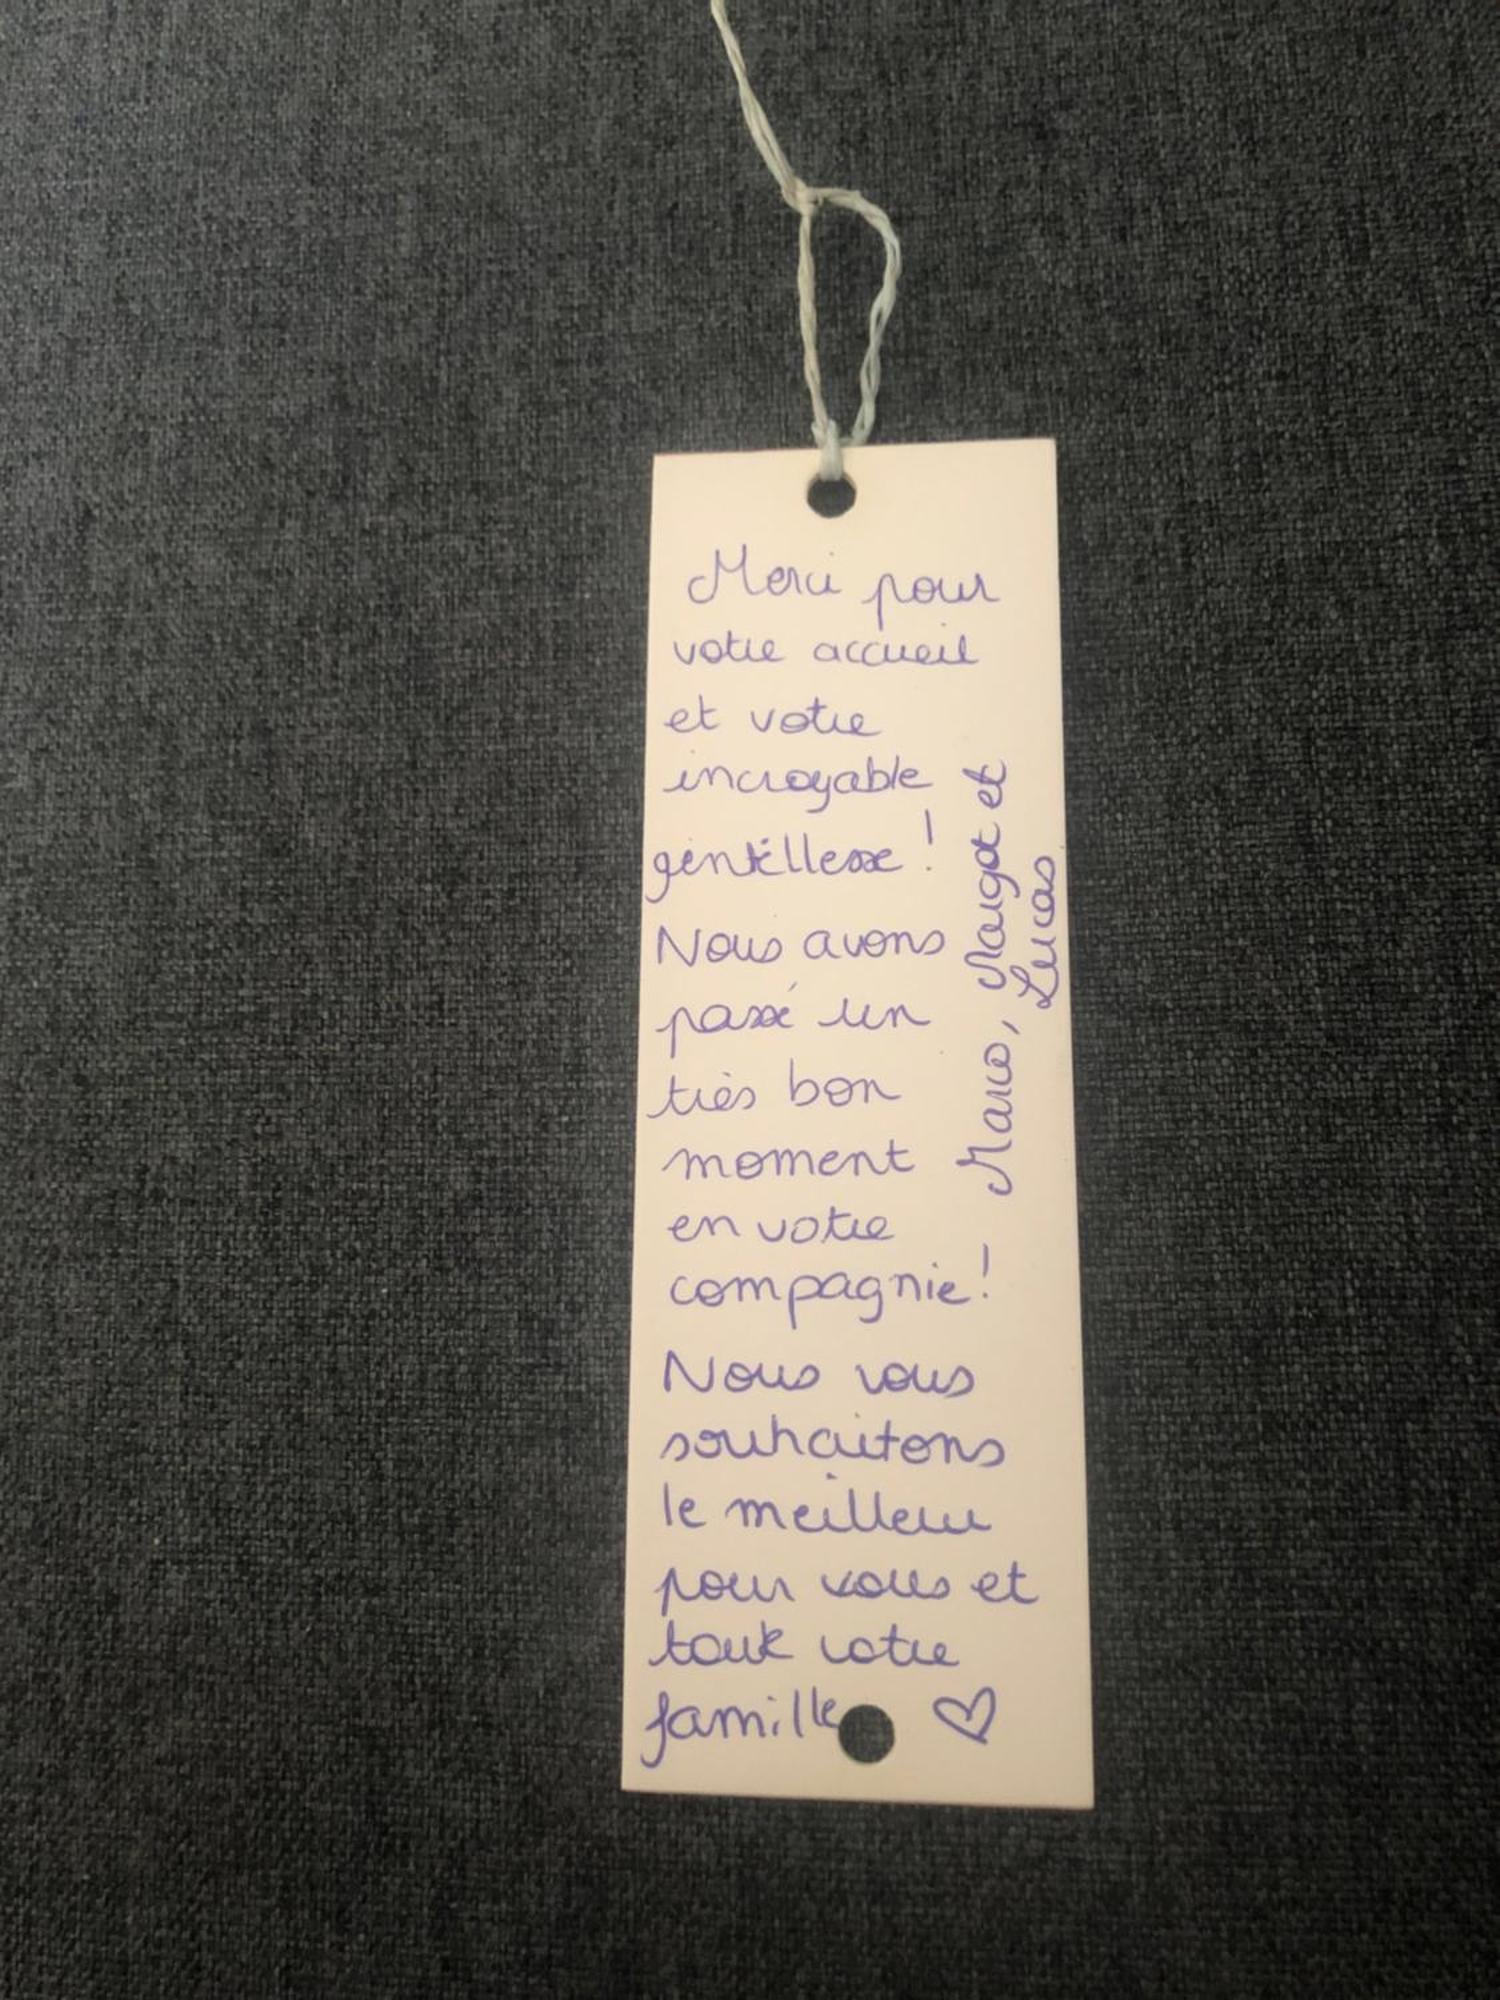 Merci pour
votre accueil
et votre
incroyable
gentillesse !
Nous avons
passé un
très bon
moment
en votre
compagnie !
Nous vous
souhaitons
le meilleur
pour vous et
toute votre
famille ♡
Marco, Margot et
Lucas